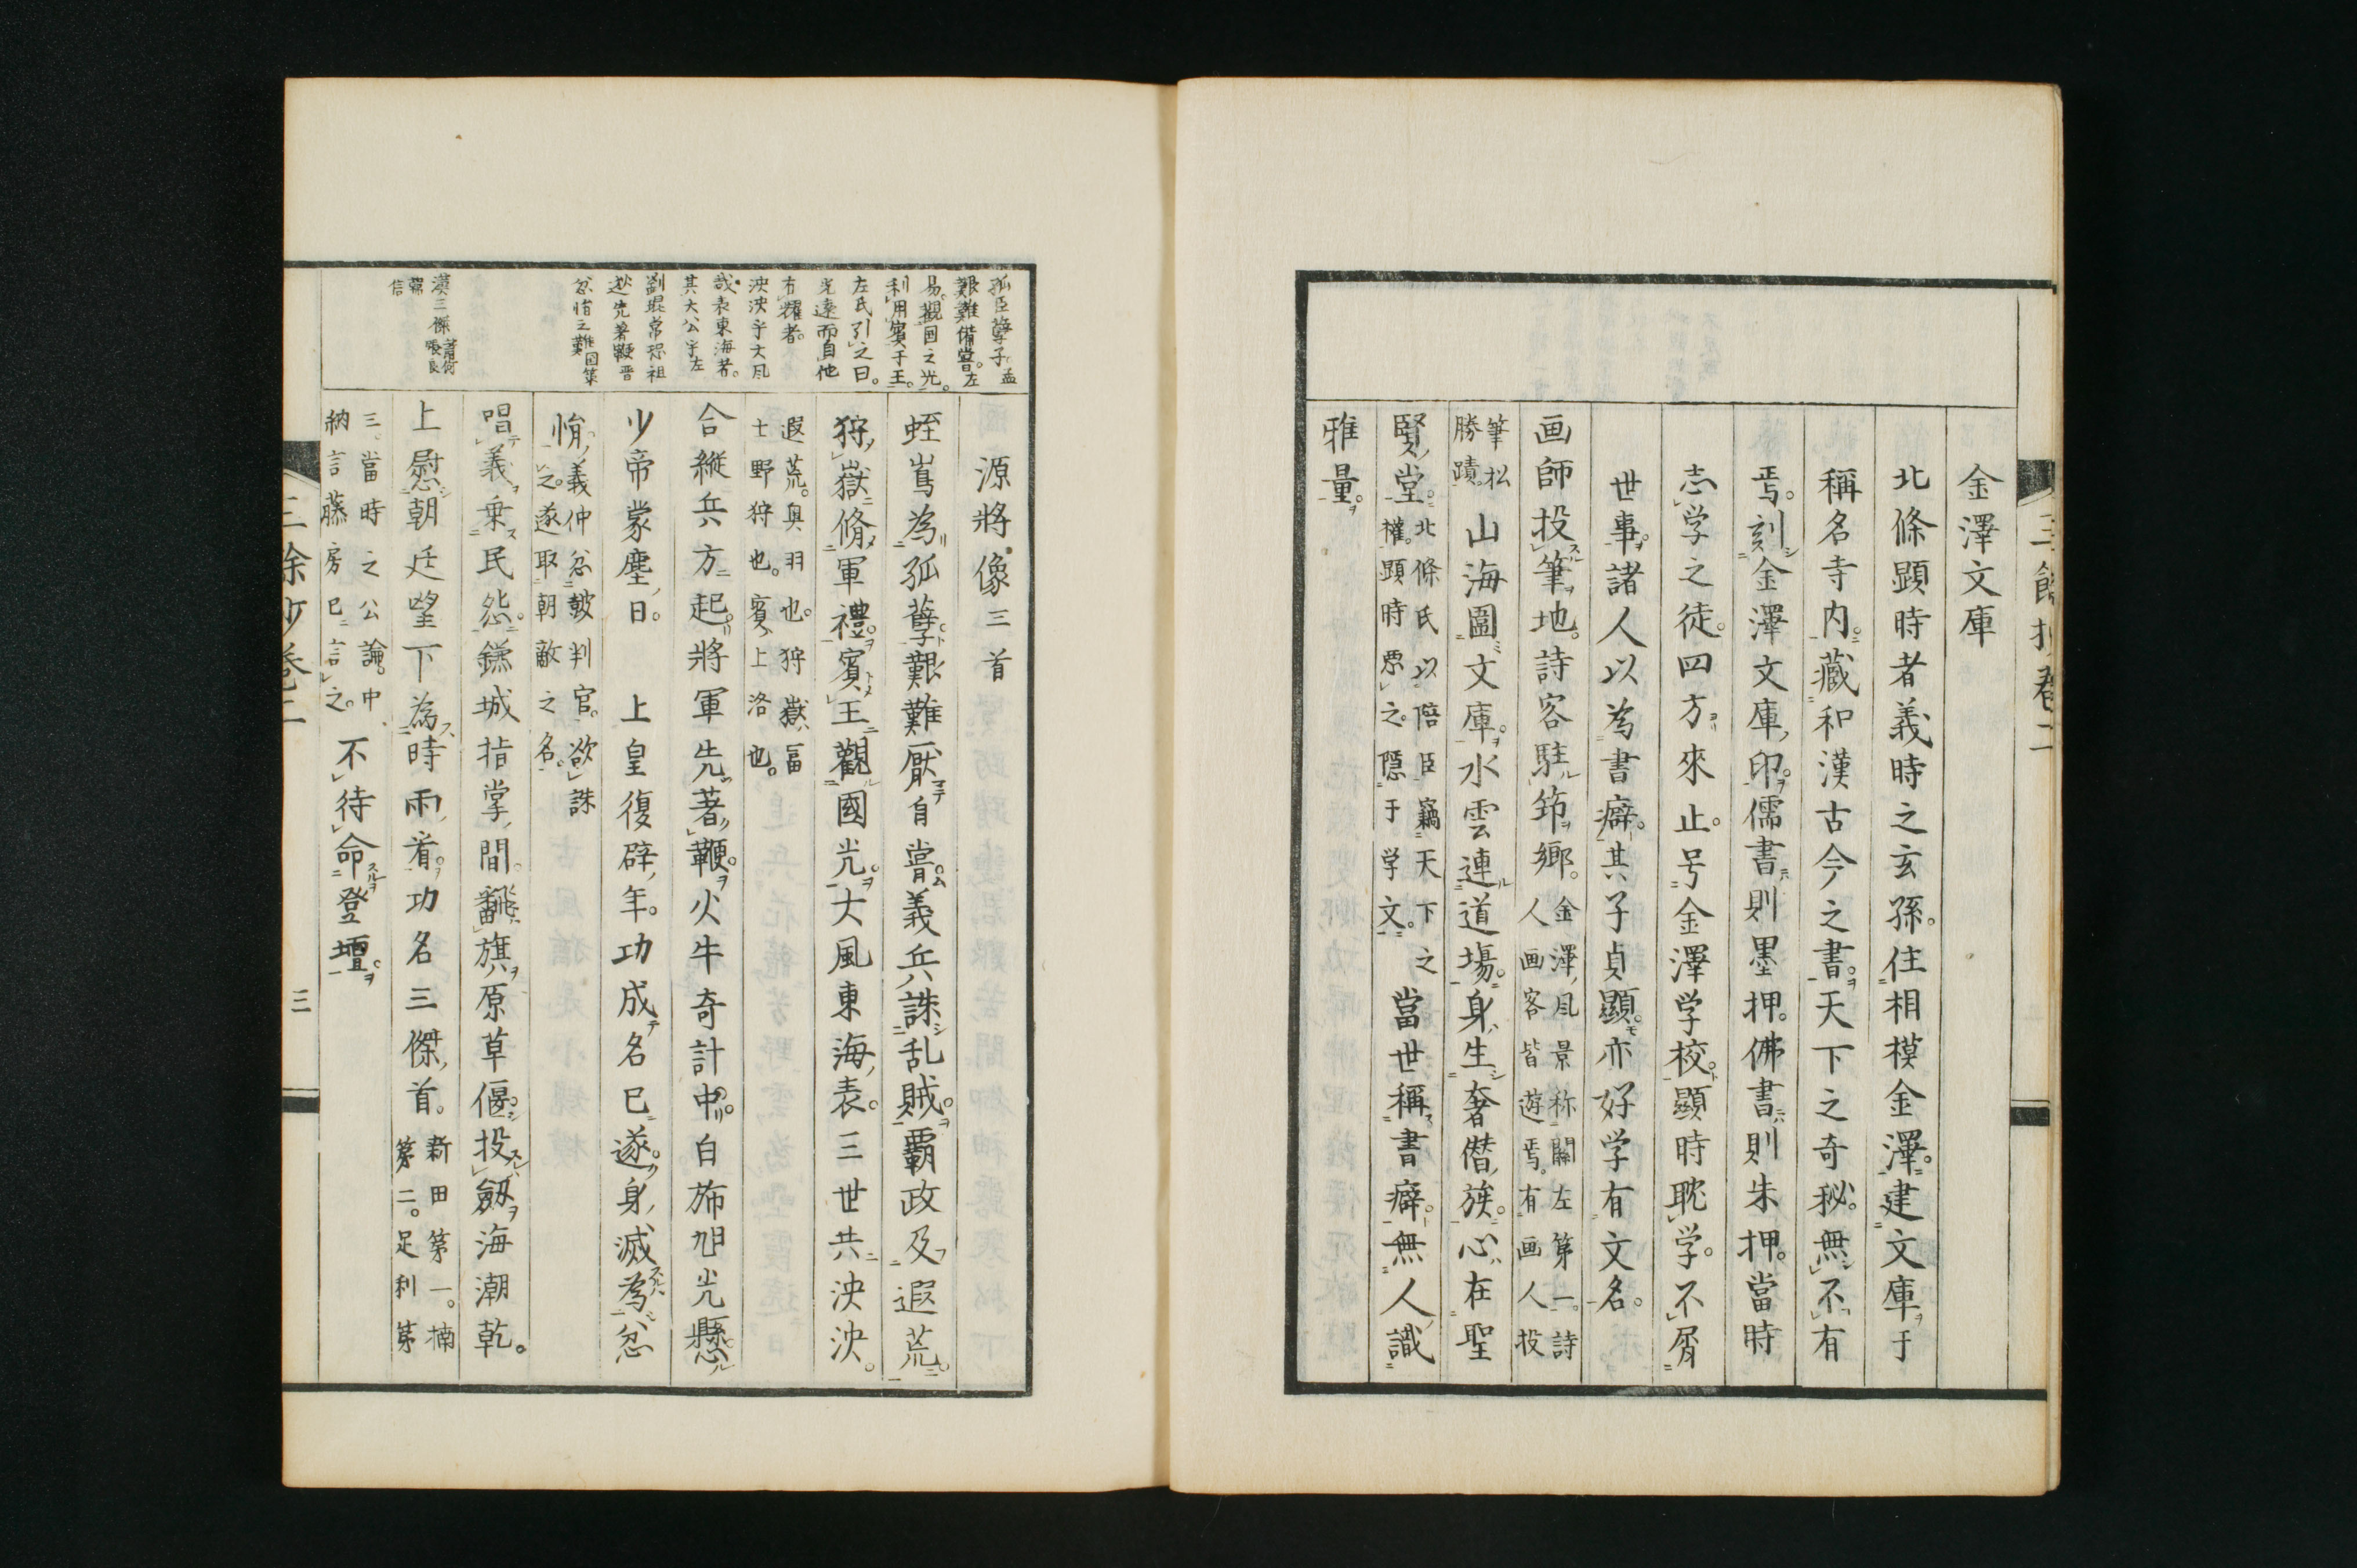 金澤文庫
北條顕時者義時之玄孫。住相模金澤。建文庫ヲ于
稱名寺内。藏和漢古今之書。天下之奇秘。無不有
焉。刻金澤文庫印。儒書則墨押。佛書則朱押。當時
志学之徒。四方來止。号金澤学校。顕時耽学。不屑
世事。諸人以為書癖。其子貞顯亦好学有文名。
画師投筆地。詩客駐筇郷。金澤風景称關左第一。詩
人画客皆遊焉。有画人投
筆松
勝蹟。山海圖文庫。水雲連道場。身生奢僣族。心在聖
賢堂。北條氏以陪臣竊天下之
權。顕時悪之。隠于学文。當世稱書癖。無人識
雅量。
三餘抄卷二
源將像三首
蛭嶌為孤孽艱難厭自嘗義兵誅乱賊。覇政及遐荒。
狩嶽脩軍禮。賓王觀國光。大風東海表。三世共泱泱。
遐荒。奥羽也。狩嶽、冨
士野狩也。賓、上洛也。
合縱兵方起。將軍先著鞭。火牛奇計中。白斾旭光懸
少帝蒙塵日。上皇復辟年。功成名已遂。身滅為忿
悁。義仲忿皷判官。欲誅
之。遂取朝敵之名。
唱義乗民怨。鎌城指掌間。翻旗原草偃。投劔海潮乾。
上慰朝廷望下為時雨看。功名三傑首。新田第一。楠
第二。足利第
三。當時之公論。中
納言藤房已言之。不待命登壇。
孤臣孽子。孟
艱難備嘗。左
易。觀国之光。
利用賓于王。
左氏引之曰。
光遠而自他
有耀者。
泱泱乎大風
哉。表東海者。
其大公乎左
劉琨常恐祖
逖先著鞭晋
忿悁之難国策
漢三傑蕭何
張良
韓信
三餘抄卷二
三